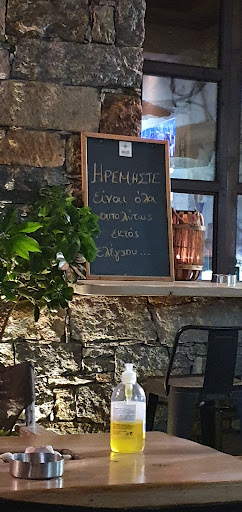 ΗΡΕΜΗΣΤΕ
είναι όλα
απολύτως
εκτός
ελέγχου...